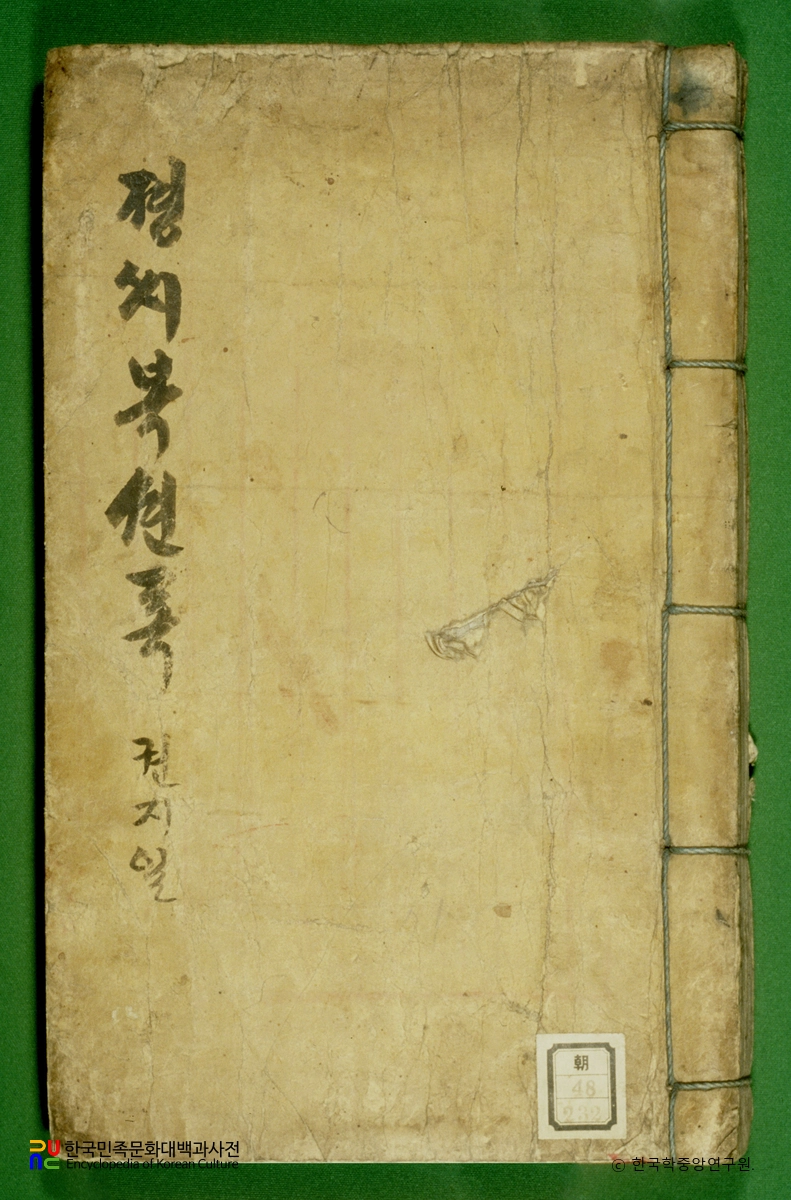 졍시복션록
권지일
朝
48
232
한국민족문화대백과사전
Encyclopedia of Korean Culture
ⓒ 한국학중앙연구원.